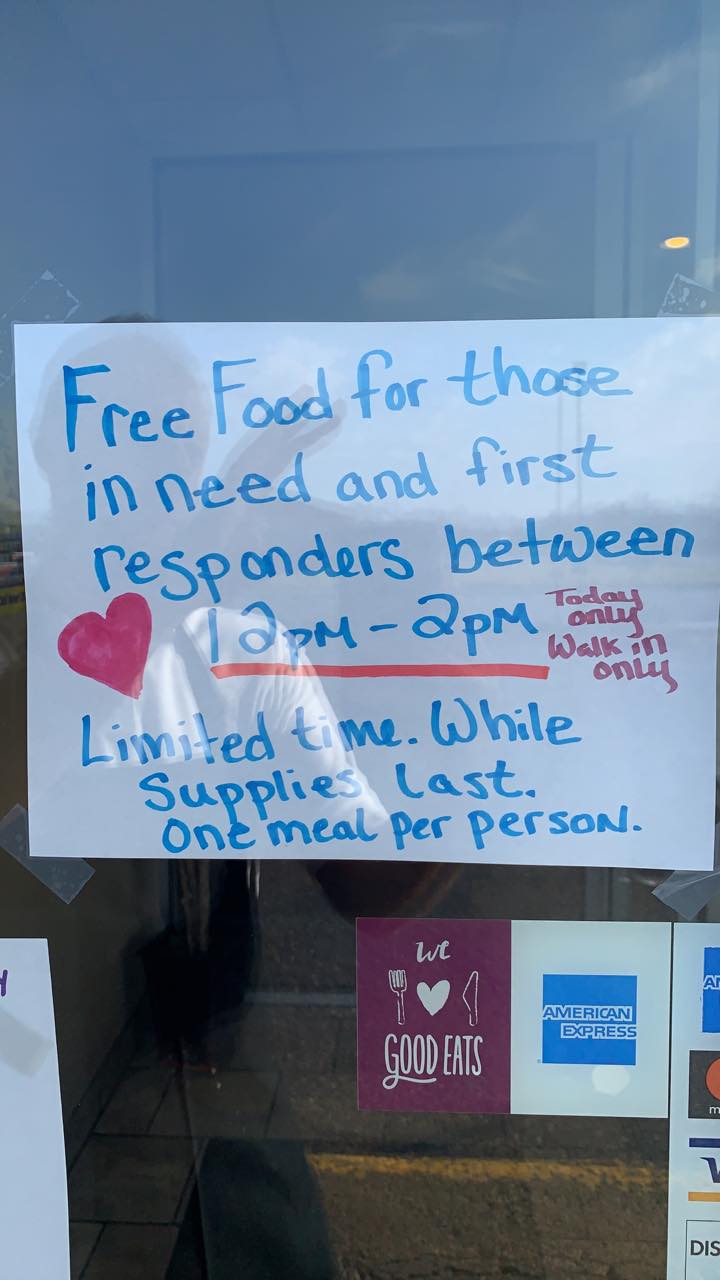 Free Food for those
in need and first
responders between
12pm - 2pm
Today
only
Walk in
only
Limited time. While
Supplies last.
One meal per person.
We
GOOD EATS
AMERICAN
EXPRESS
DIS